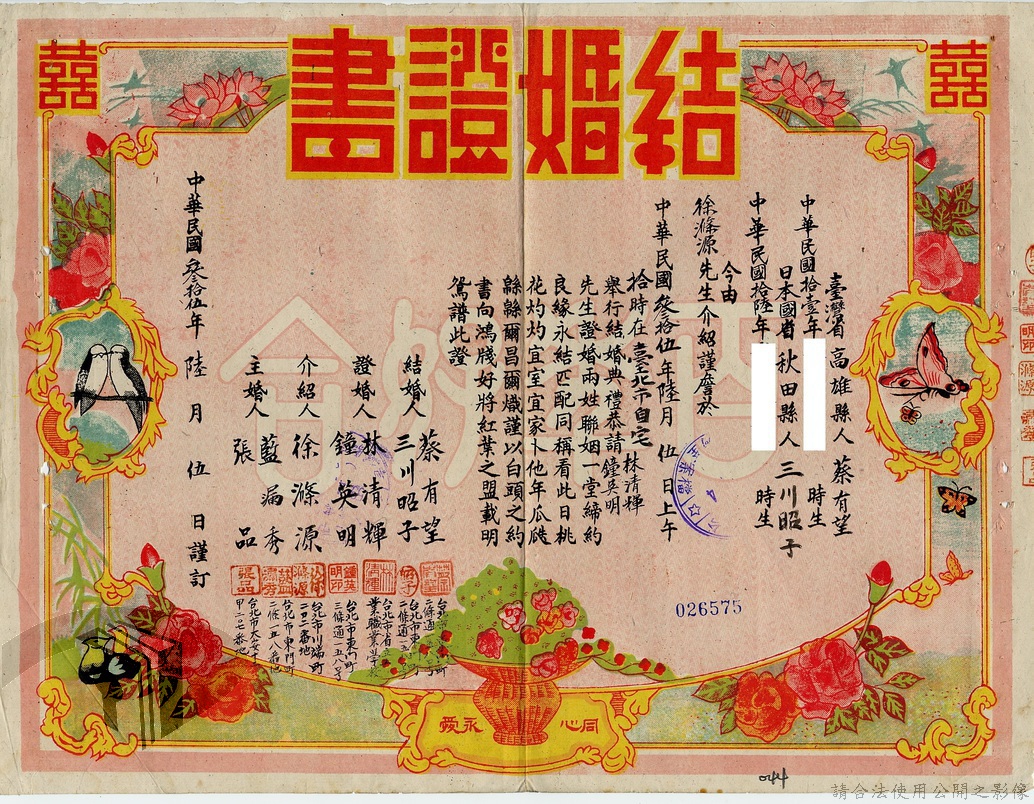 囍
結婚證書
囍
臺灣省高雄縣人 蔡有望
中華民國拾壹年
時生
日本國省秋田縣人 三川昭子
中華民國拾陸年
時生
今由
徐滌源先生介紹謹詹於
中華民國叄拾伍年陸月伍日上午
拾時在臺北市自宅
舉行結婚典禮恭請鐘英明林清輝
先生證婚兩姓聯姻一堂締約
良緣永結匹配同稱看此日桃
花灼灼宜室宜家卜他年瓜瓞
緜緜爾昌爾熾謹以白頭之約
書向鴻牋好將紅葉之盟載明
鴛譜此證
結婚人 蔡有望
三川昭子
證婚人 林清輝
鐘英明
介紹人 徐滌源
主婚人 藍漏秀
張品
台北市東門町
三條通一五八号
台北市川端町
二〇二番地
台北市東門町
中華民國叄拾伍年陸月伍日謹訂
026575
同心
永愛
044
請合法使用公開之影像